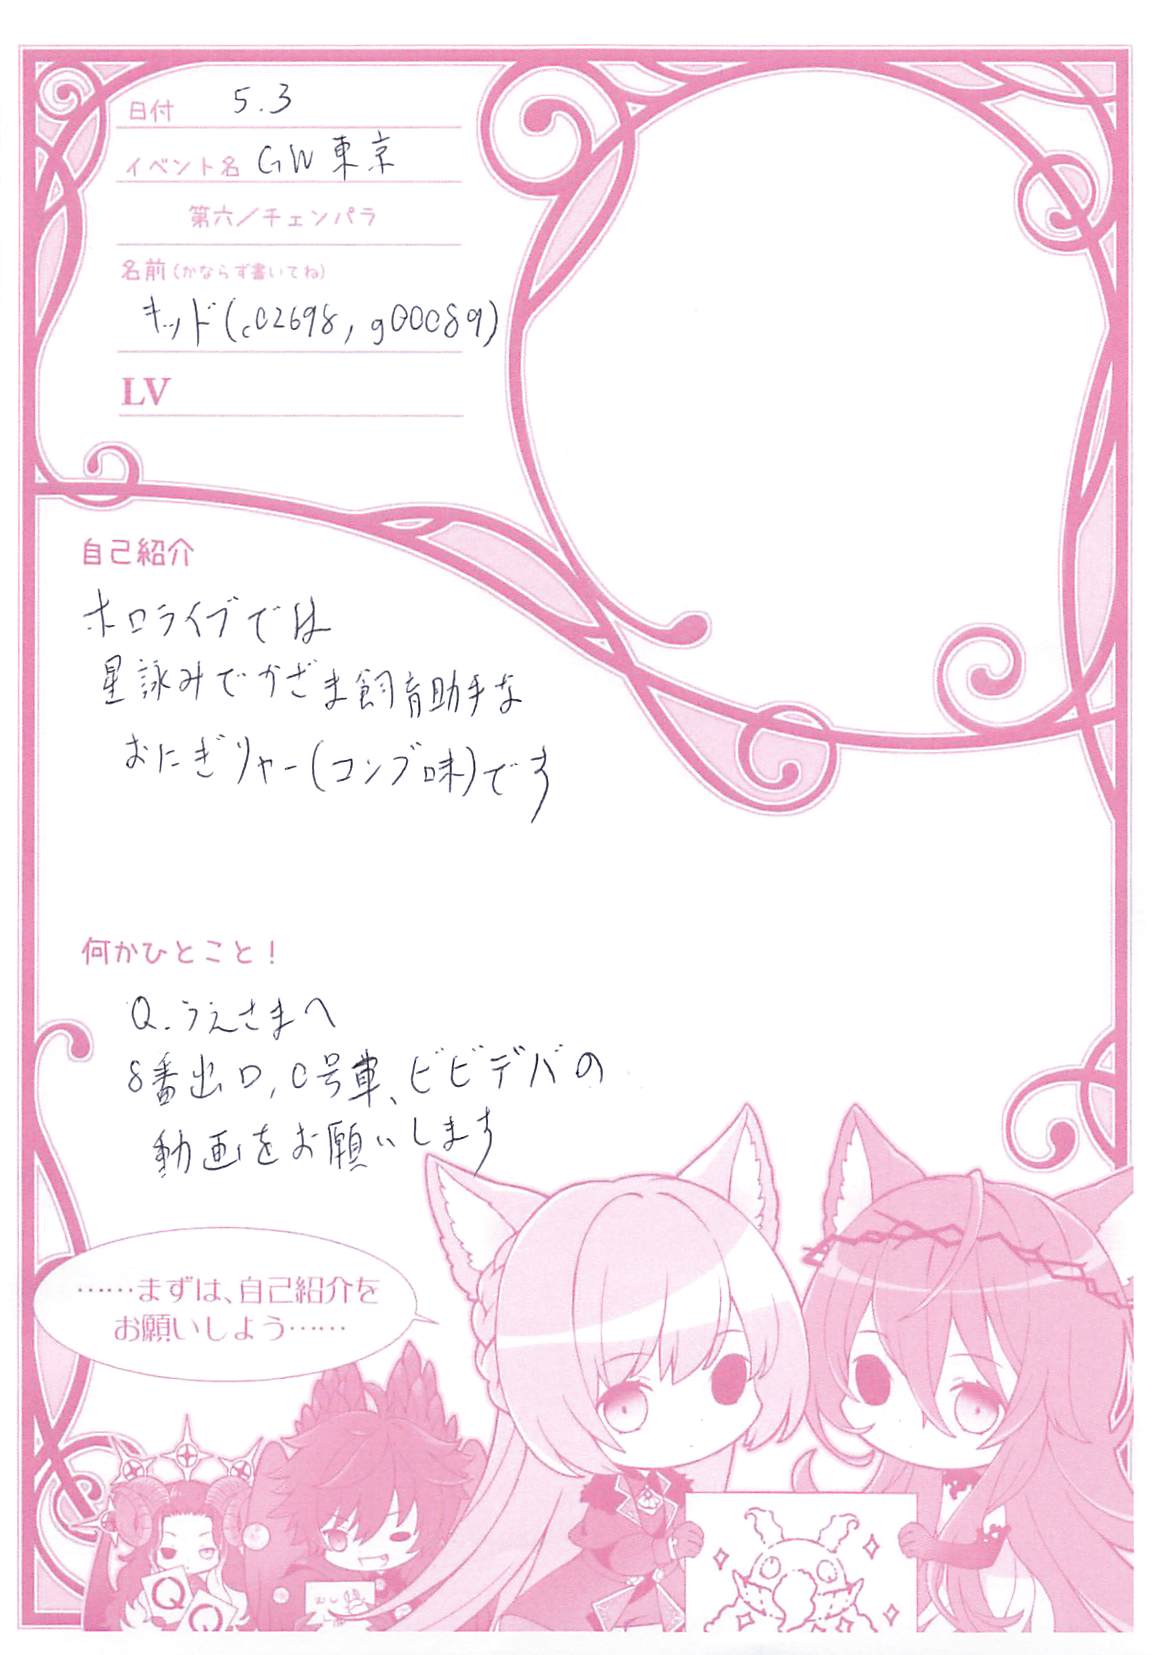 日付 5.3
イベント名 GW東京
第六／チェンパラ
名前(かならず書いてね)
キッド(c02698, g00089)
LV
自己紹介
ホロライブでは
星詠みでかざま飼育助手な
おにぎりゃー(コンブ味)です
何かひとこと！
Q.うえさまへ
8番出口,0号車、ビビデバの
動画をお願いします
……まずは、自己紹介を
お願いしよう……
Q Q